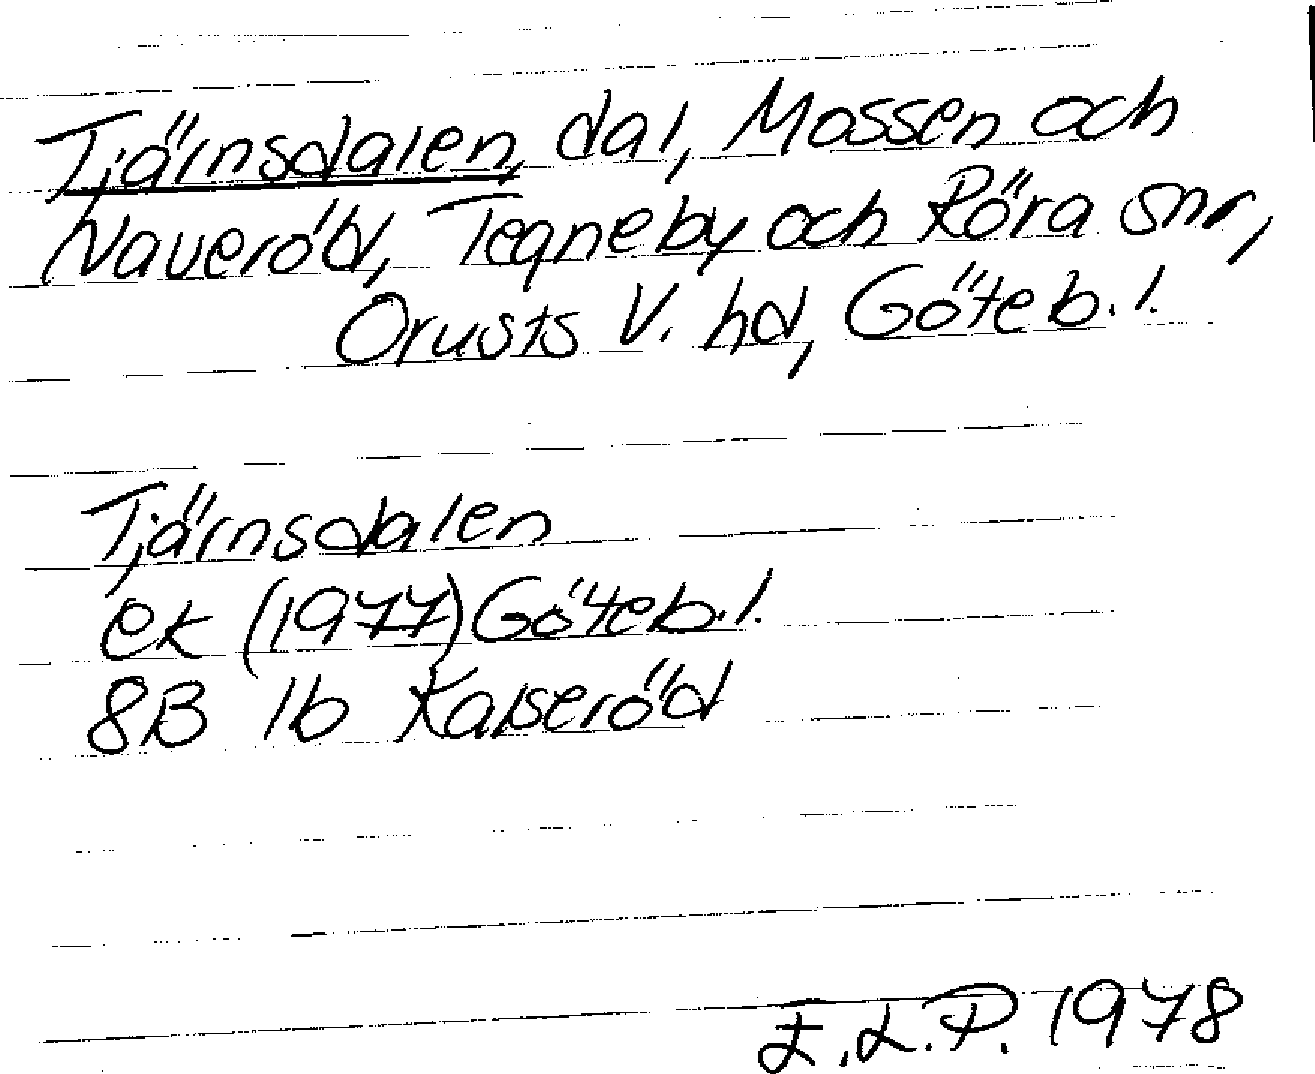 Tjärnsdalen, dal, Mossen och
Naveröd, Tegneby och Röra snr,
Orusts V. hd, Göteb. l.
Tjärnsdalen
ek (1977) Göteb. l.
8B 1b Kaiseröd
E.L.P. 1978